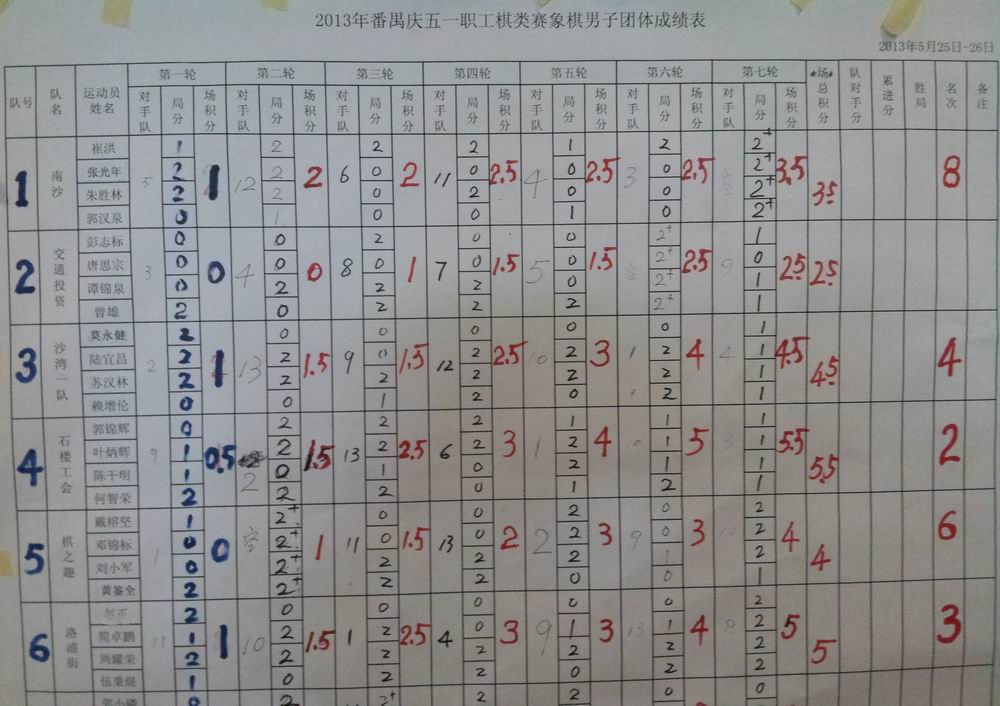 2013年番禺庆五一职工棋类赛象棋男子团体成绩表
2013年5月25日-26日
队号 队名 运动员姓名 第一轮 第二轮 第三轮 第四轮 第五轮 第六轮 第七轮 场总积分 队对手分 累进分 胜局 名次 备注
对手队 局分 场积分 对手队 局分 场积分 对手队 局分 场积分 对手队 局分 场积分 对手队 局分 场积分 对手队 局分 场积分 对手队 局分 场积分
崔洪 1 2 2 2 1 2 2+
1 南沙 张光年 5 2 1 12 2 2 6 0 2 11 0 2.5 4 0 2.5 3 0 2.5 2+ 3.5 3.5 8
朱胜林 2 2 0 2 0 0 2+
郭汉泉 0 1 0 0 1 0 2+
彭志标 0 0 2 0 0 2+ 1
2 交通投资 唐思宗 3 0 0 4 0 0 8 0 1 7 0 1.5 5 0 1.5 2+ 2.5 9 0 2.5 2.5
谭锦泉 0 2 2 2 0 2+ 1
曾雄 2 0 2 2 2 2+ 1
莫永健 2 0 0 0 0 0 1
3 沙湾一队 陆宜昌 2 2 1 13 2 1.5 9 0 1.5 12 2 2.5 10 2 3 1 2 4 4 1 4.5 4.5 4
苏汉林 2 2 2 2 2 2 1
赖增伦 0 0 1 2 0 2 1
郭锦辉 0 2 2 2 1 1 1
4 石楼工会 叶炳辉 9 1 0.5 2 2 1.5 13 2 2.5 6 2 3 1 2 4 10 1 5 3 1 5.5 5.5 2
陈干明 1 0 1 0 2 1 1
何智荣 2 2 2 0 1 2 1
戴榕坚 1 2+ 0 0 2 0 2
5 棋之趣 邓锦标 1 0 0 空 2+ 1 11 0 1.5 13 0 2 2 2 3 9 0 3 2 4 4 6
刘小军 0 2+ 2 2 2 1 2
黄鉴全 2 2+ 2 2 0 0 1
2 0 0 0 0 0 2
6 洛浦街 简卓鹏 11 1 1 10 2 1.5 1 2 2.5 4 0 3 9 1 3 13 1 4 8 2 5 5 3
周耀荣 2 2 2 2 2 2 2
伍秉煜 1 0 2 2 0 2 2
0 2 2+ 2 2 0 0